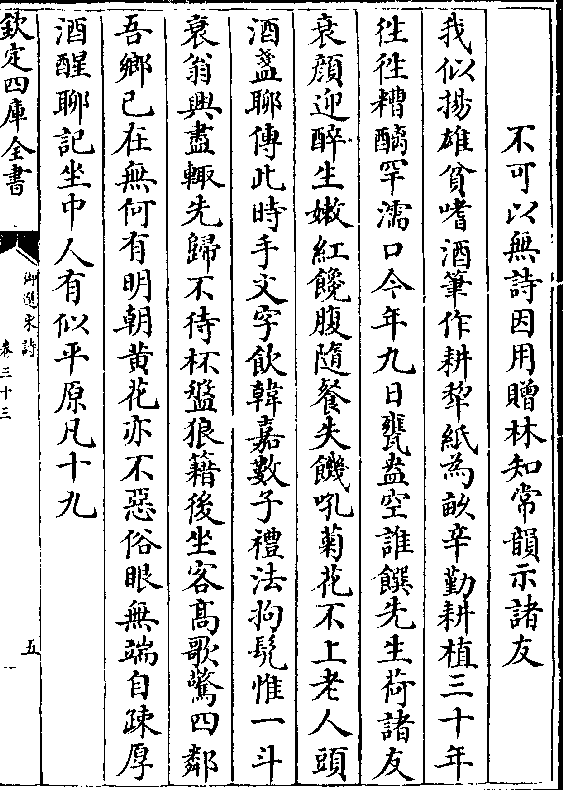 不可以無詩因用贈林知常韻示諸友
我似揚雄貧嗜酒筆作耕犂紙為畝辛勤耕植三十年
徃徃糟醨罕濡口今年九日甕盎空誰饌先生荷諸友
衰顔迎醉生嫩紅饞腹隨餐失饑吼菊花不上老人頭
酒盞聊傳此時手文字飲韓嘉數子禮法拘髠惟一斗
衰翁興盡輒先歸不待杯盤狼籍後坐客髙歌驚四鄰
吾鄉已在無何有明朝黄花亦不惡俗眼無端自疎厚
酒醒聊記坐中人有似平原凡十九
欽定四庫全書
御選宋詩
卷三十三
五